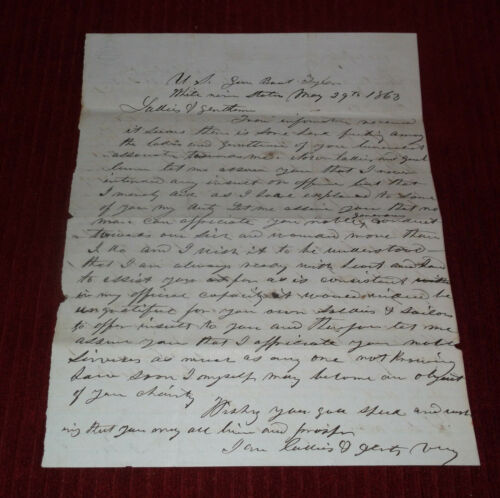 U. S. Gun Boat Tyler
White river Station May 29th 1863
Ladies & Gentlemen
From information received
it seems there is some hard feeling among
the Ladies and Gentlemen of your
association towards me. Now Ladies and Gent
lemen let me assure you that I never
intended any insult or offence but that
I merely did as I have explained to some
of you my duty. Let me assure you that no
man can appreciate your noble generous conduct
towards our sick and wounded more than
I do and I wish it to be understood
that I am always ready with heart and hand
to assist you as far as is consistent with
in my official capacity it would indeed be
ungratiful for you own Soldiers & Sailors
to offer insult to you and therefore let me
assure you that I appreciate your noble
Services as much as any one not knowing
how soon I myself may become an object
of your charity
Wishing you God speed and
ing that you may all live and prosper
I am Ladies & Gents very